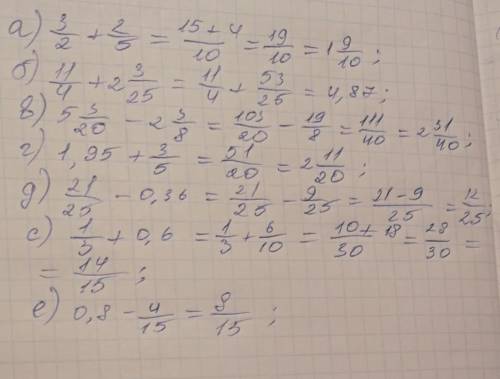 а) 3/2 + 2/5 = (15+4)/10 = 19/10 = 1 9/10;
б) 11/4 + 2 3/25 = 11/4 + 53/25 = 4,87;
в) 5 3/20 - 2 3/8 = 103/20 - 19/8 = 111/40 = 2 31/40;
г) 1,95 + 3/5 = 51/20 = 2 11/20;
д) 21/25 - 0,36 = 21/25 - 9/25 = (21-9)/25 = 12/25;
с) 1/3 + 0,6 = 1/3 + 6/10 = (10+18)/30 = 28/30 =
= 14/15;
е) 0,8 - 4/15 = 8/15;